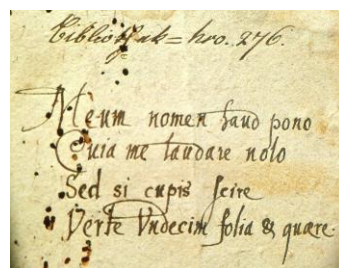 Bibliothek = hro. 276.
Meum nomen haud pono
Quia me laudare nolo
Sed si cupis scire
Verte Vndecim folia & quære.